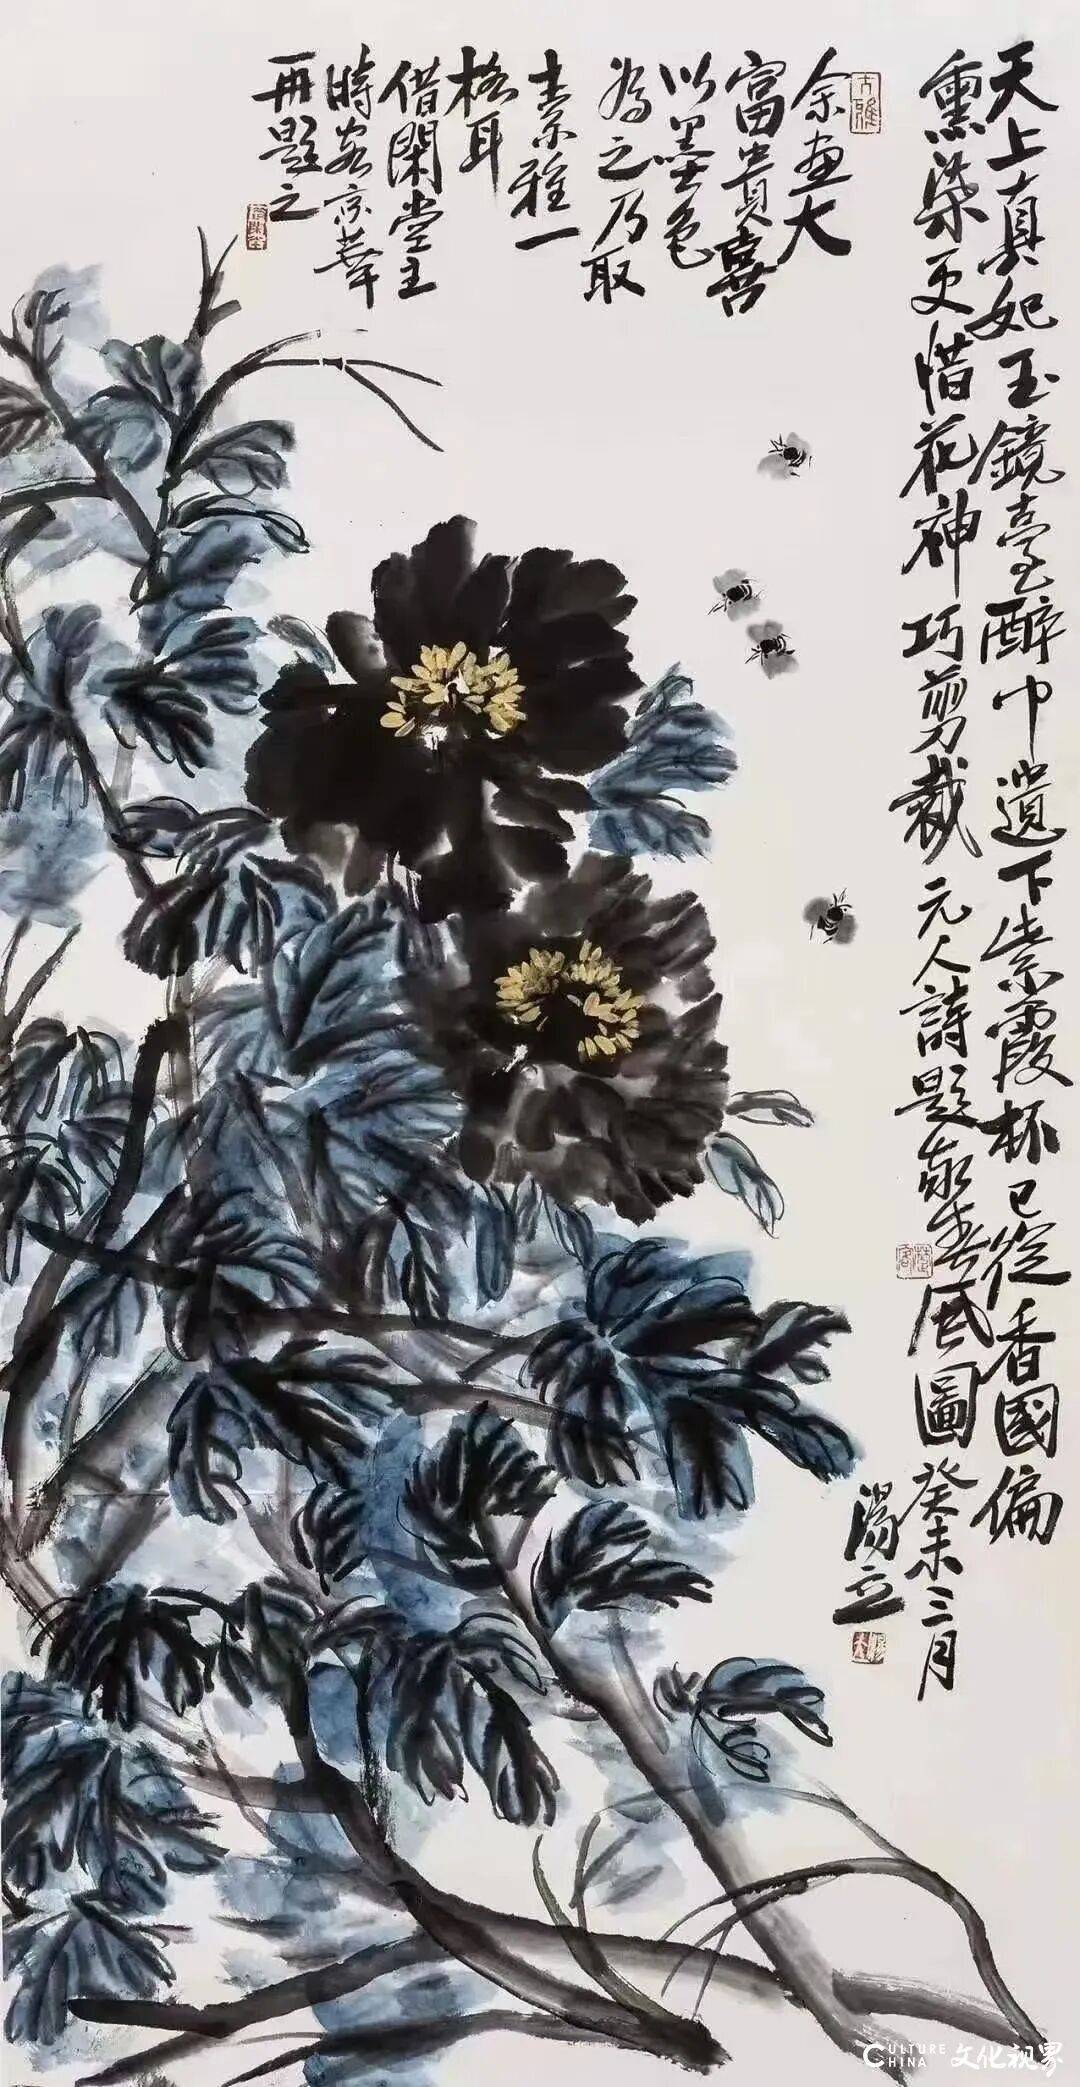 天上真妃玉鏡臺醉中遺下紫霞杯已從香國偏
熏染更惜花神巧剪裁 元人詩題敬春風圖 癸未三月
湯立
余画大
富貴喜
以墨色
為之乃取
素雅一
格耳
借閑堂主
時客京華
再題之
CULTURE CHINA 文化视界